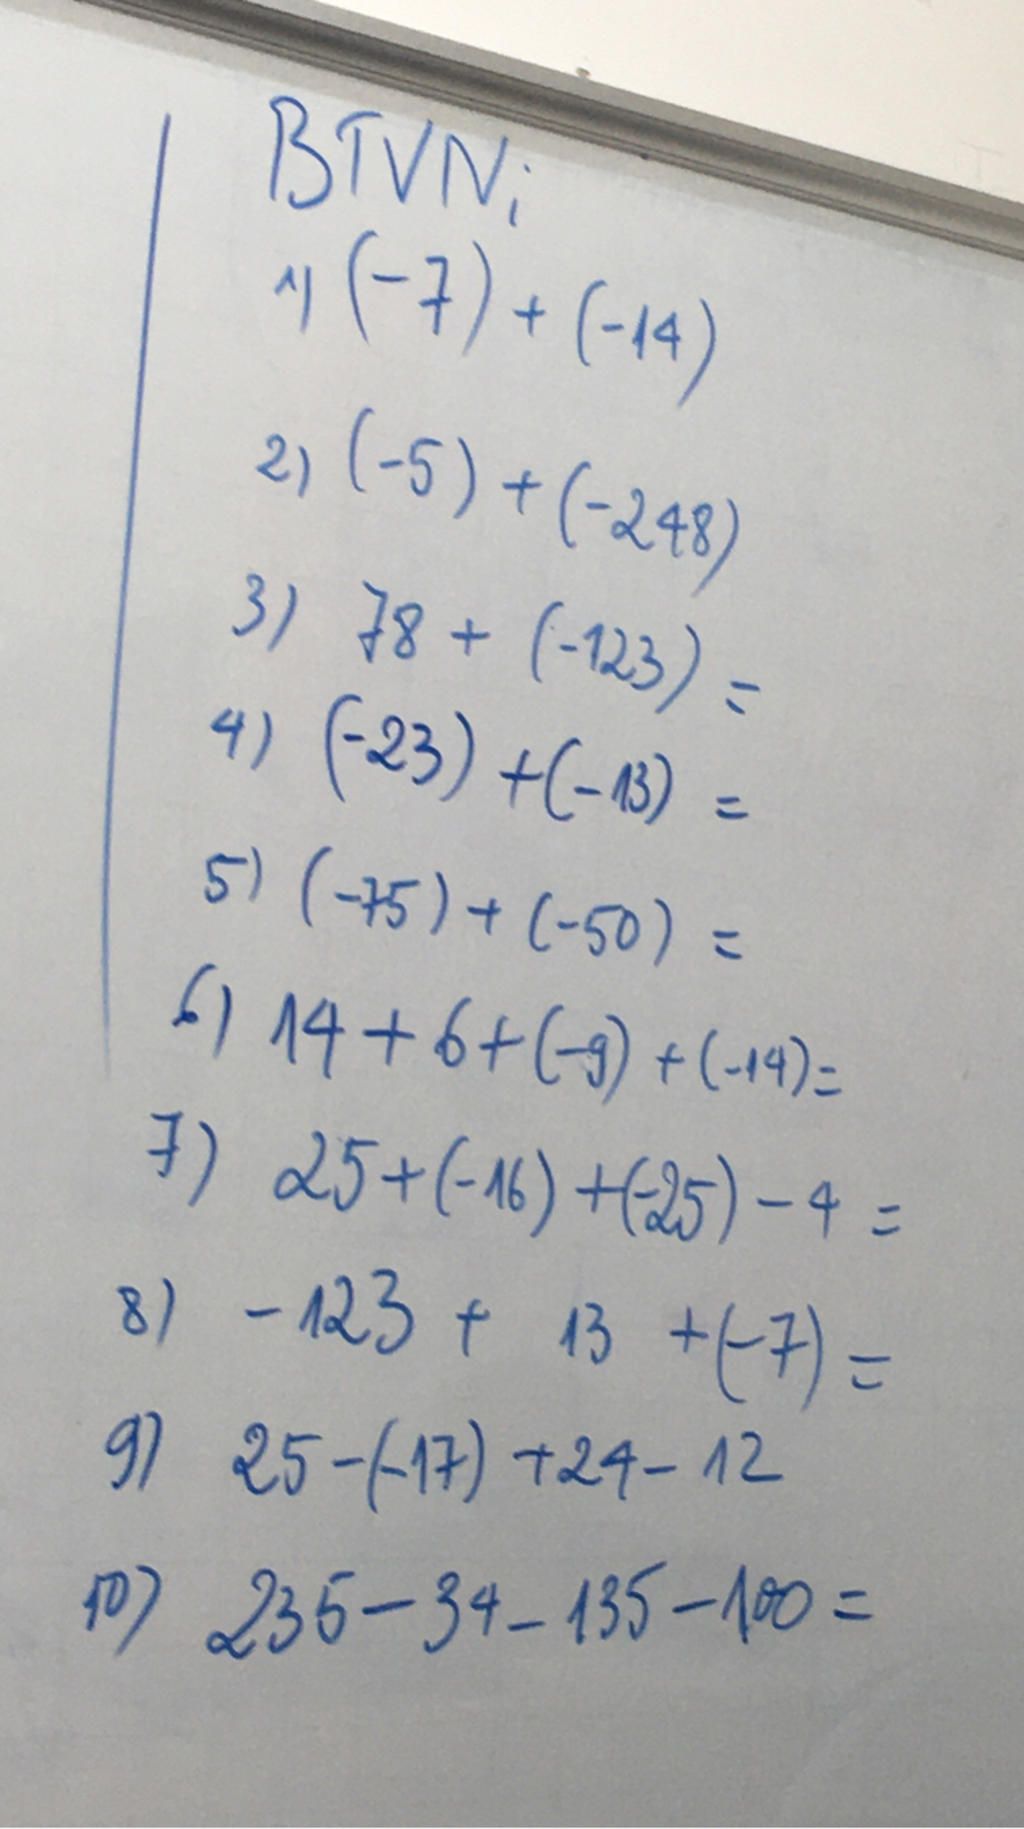 BTVN;
1) (-7) + (-14)
2) (-5) + (-248)
3) 78 + (-123) =
4) (-23) + (-13) =
5) (-75) + (-50) =
6) 14 + 6 + (-9) + (-14) =
7) 25 + (-16) + (-25) - 4 =
8) -123 + 13 + (-7) =
9) 25 - (-17) + 24 - 12
10) 235 - 34 - 135 - 100 =